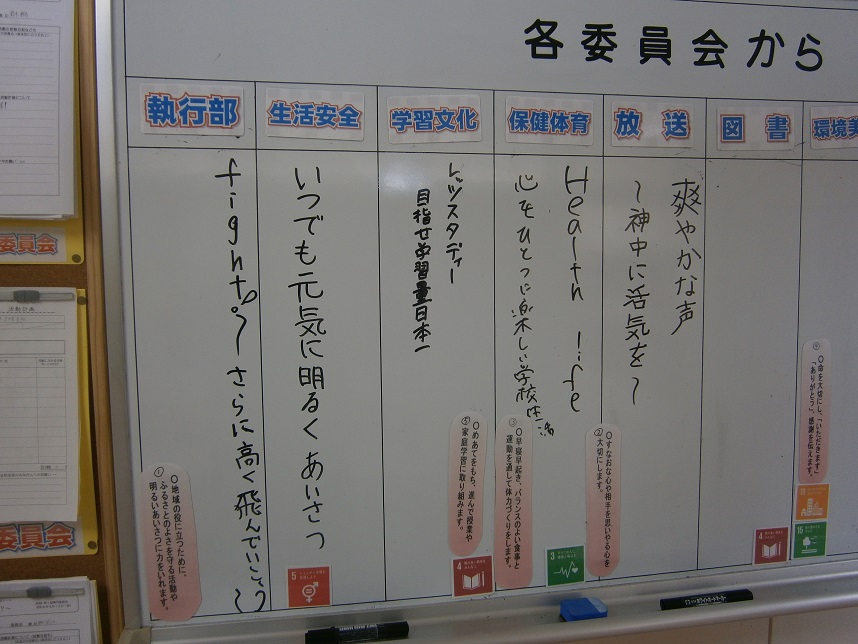 各委員会から
執行部
fight!o~さらに高く飛んでいこう
①
〇地域の役に立つために、
ふるさとのよさを守る活動や
明るいあいさつに力をいれます。
生活安全
いつでも元気に明るくあいさつ
5
学習文化
レッツスタディー
目指せ学習量日本一
⑤
〇めあてをもち、進んで授業や
家庭学習に取り組みます。
4
保健体育
Health life
心をひとつに楽しい学校生活
③
〇早寝早起き、バランスのよい食事と
運動を通して体力づくりをします。
3
放送
爽やかな声
~神中に活気を~
②
〇すなおな心や相手を思いやる心を
大切にします。
図書
4
環境美
④
〇命を大切にし、「いただきます」
「ありがとう」感謝を伝えます。
11
15
委員会
委員会
活動計画